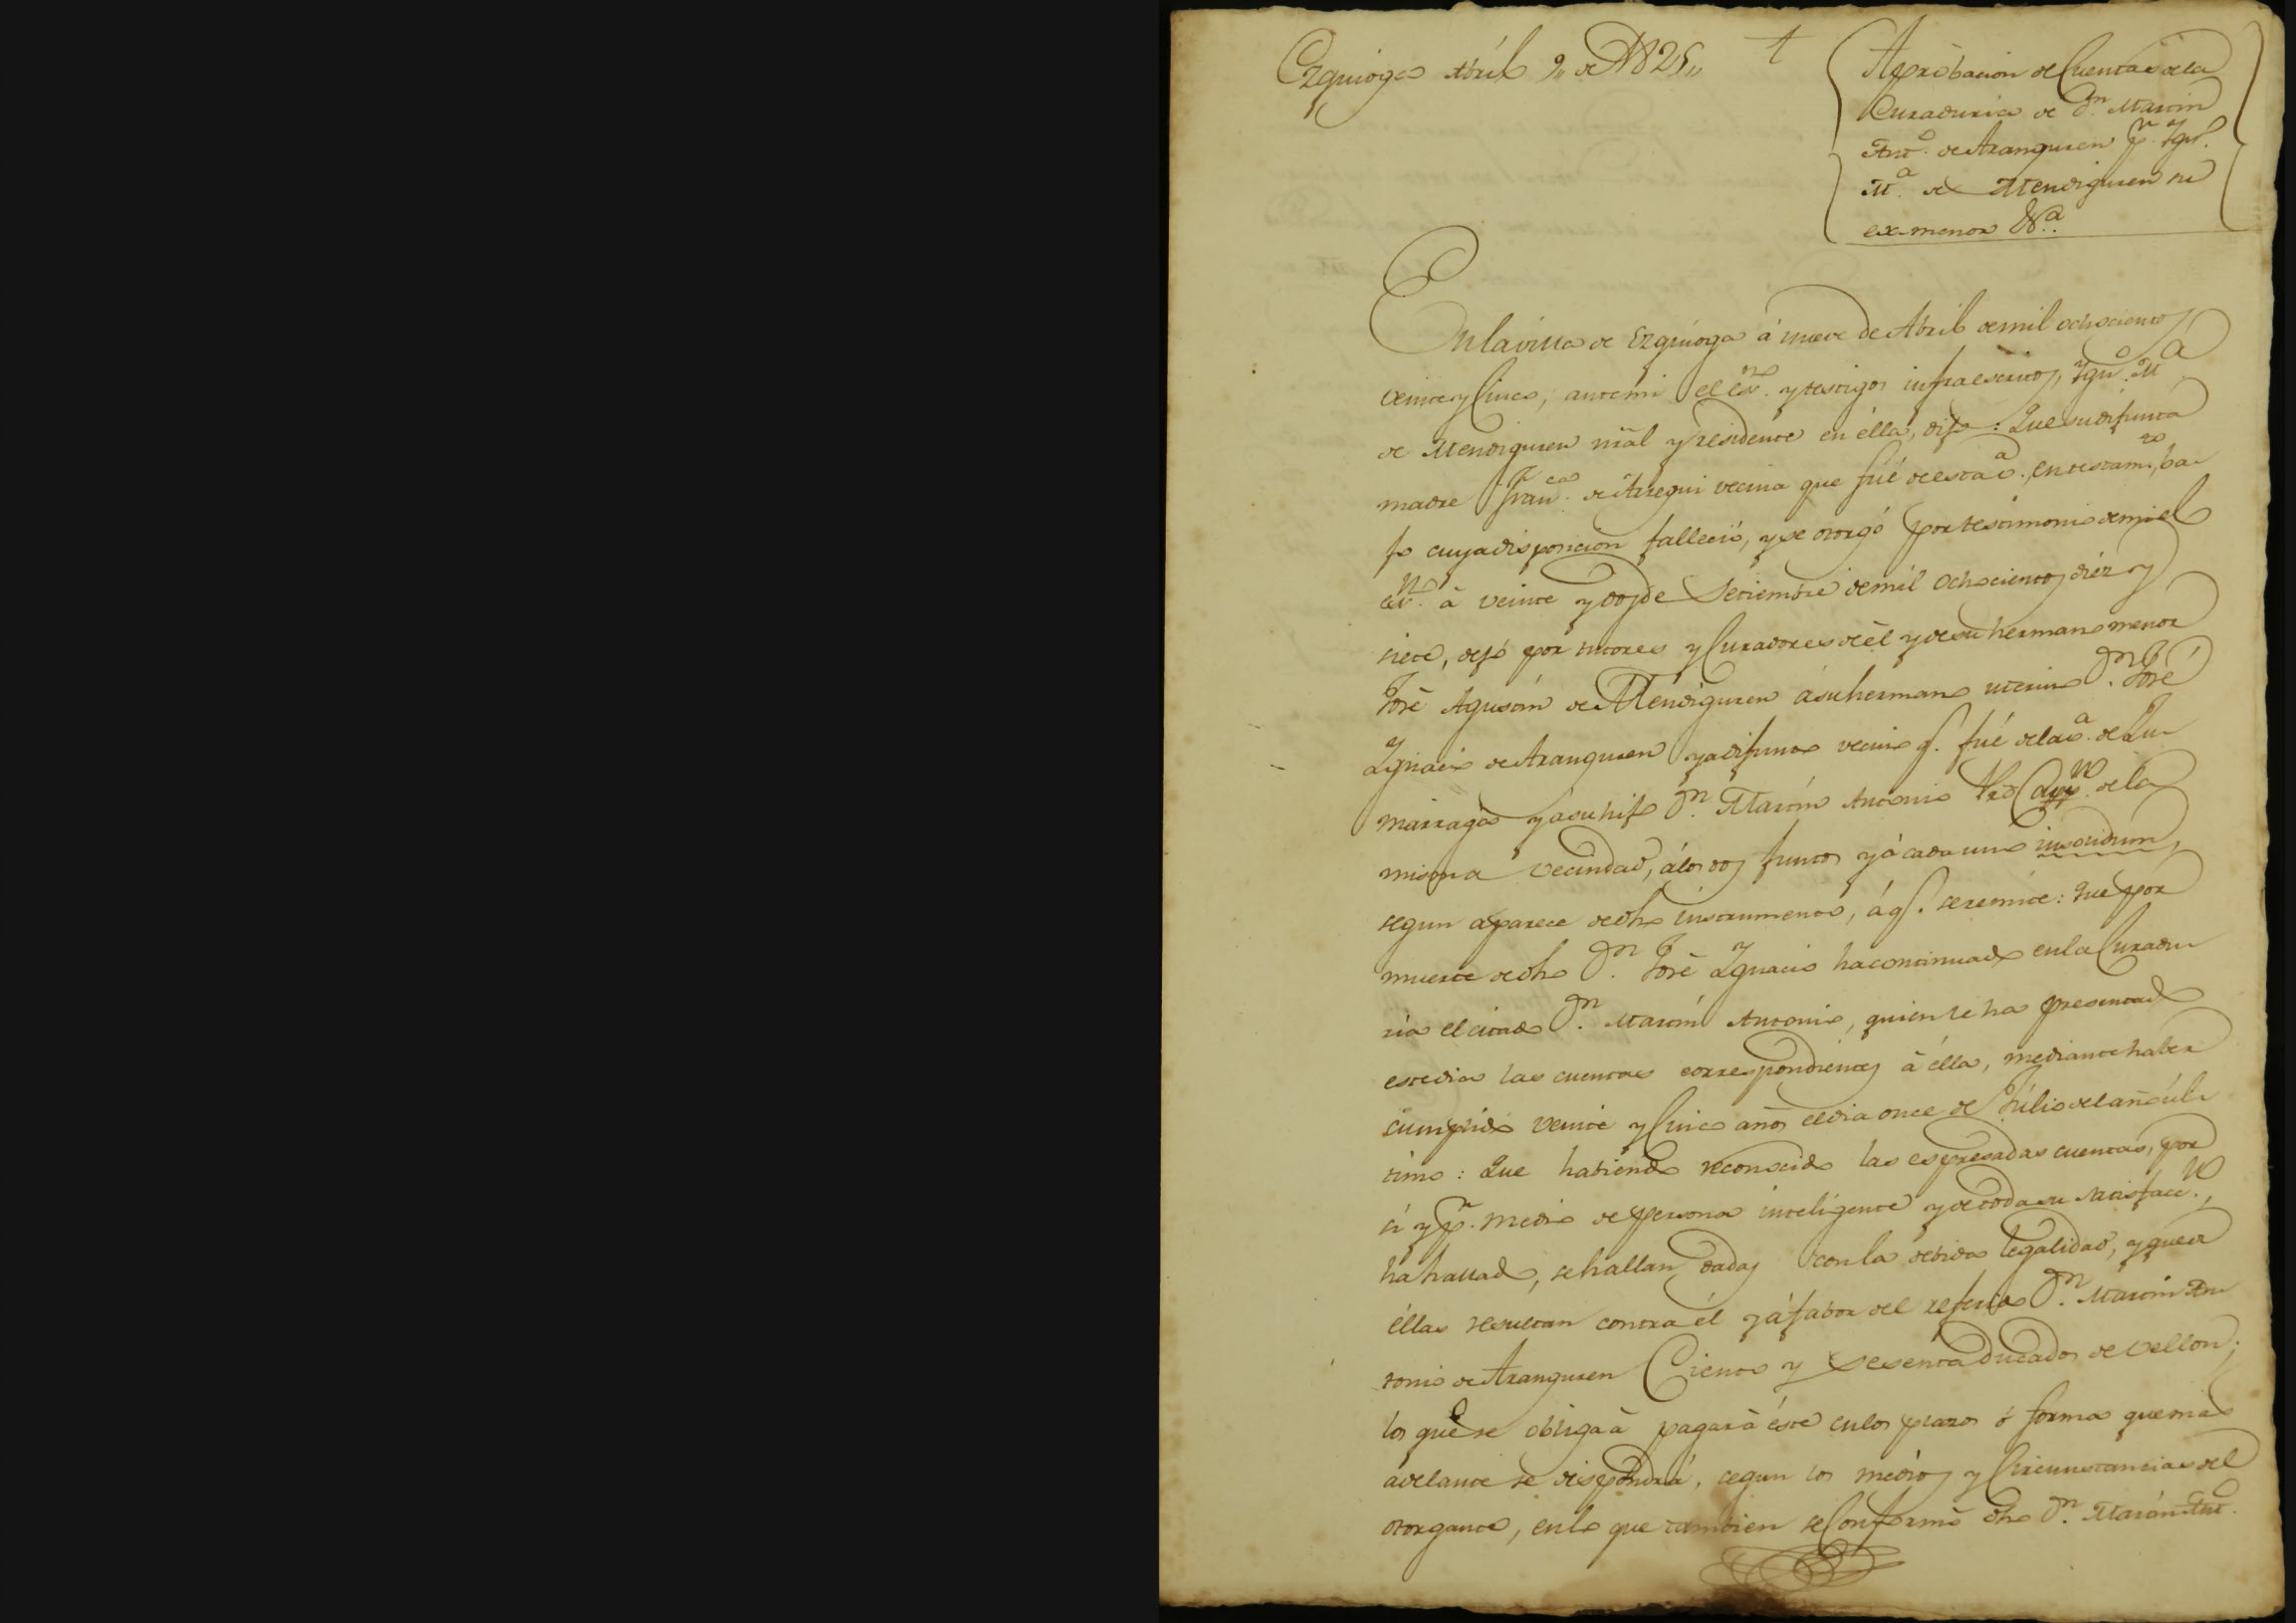 Ezquioga Abril 9,, de 1825,,
Aprobacion de Cuentas de la
Curaduria de Dn. Martin
Anto. de Aranguren pr. Igno.
Ma. de Mendiguren su
ex-menor &a.
En la villa de Ezquioga á nueve de Abril de mil ochocientos
veinte y Cinco, ante mi el Esno. y testigos infraescritos, Igno. Ma.
de Mendiguren nral y residente en élla, dijo: Que su difunta
madre Franca. de Arregui vecina que fué de esta va. en testamto. ba-
jo cuya disposicion falleció, y se otorgó por testimonio de mi el
esno. á veinte y dos de Setiembre de mil ochocientos diez y
siete, dejó por tutores y Curadores de él y de su hermano menor
José Agustin de Mendiguren á su hermano uterino Dn. José
Ignacio de Aranguren ya difunto vecino q. fué de la va. de Zu-
marraga y á su hijo Dn. Martin Antonio Pro de la
misma vecindad, á los dos juntos y á cada uno insolidum,
segun aparece de dho instrumento, á q. se remite: Que por
muerte de dho Dn. José Ignacio ha continuado en la Curadu-
ria el citado Dn. Martin Antonio, quien le ha presentado
este dia las cuentas correspondientes á élla, mediante haber
cumplido veinte y Cinco años el dia once de Julio del año úl-
timo: Que habiendo reconocido las espresadas cuentas, por
si y pr. medio de persona inteligente y de toda su satisfaccn.,
ha hallado, se hallan dadas con la debida legalidad, y que de
éllas resultan contra él y á fabor del referido Dn. Martin An-
tonio de Aranguren Ciento y sesenta ducados de vellon;
los que se obliga á pagar á éste en los plazos ó forma que mas
adelante se dispondrá, segun los medios y Circunstancias del
otorgante, en lo que tambien se Conformó dho Dn. Martin Anto.